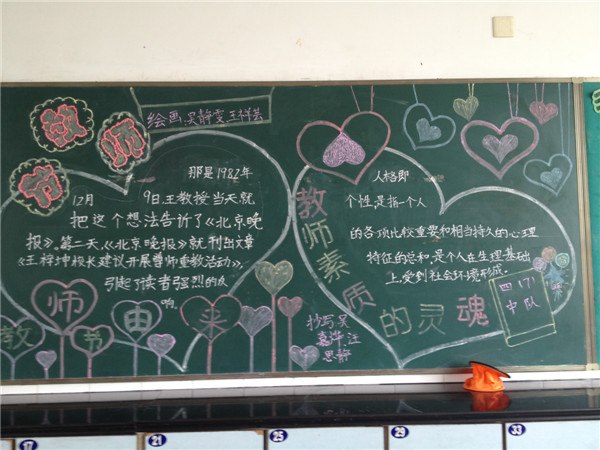 教师节
绘画:吴静雯,王祥芸
那是1982年
12月9日,王教授当天就
把这个想法告诉了《北京晚
报》,第二天,《北京晚报》就刊出文章
《王梓坤校长建议开展尊师重教活动》,
引起了读者强烈的反
响。
教师节由来
抄写吴
嘉烨,汪
思静
教师素质的灵魂
人格即
个性,是指一个人
的各项比较重要和相当持久的心理
特征的总和,是个人在生理基础
上,受到社会环境形成。
四(7)
中队
17
21
25
29
33